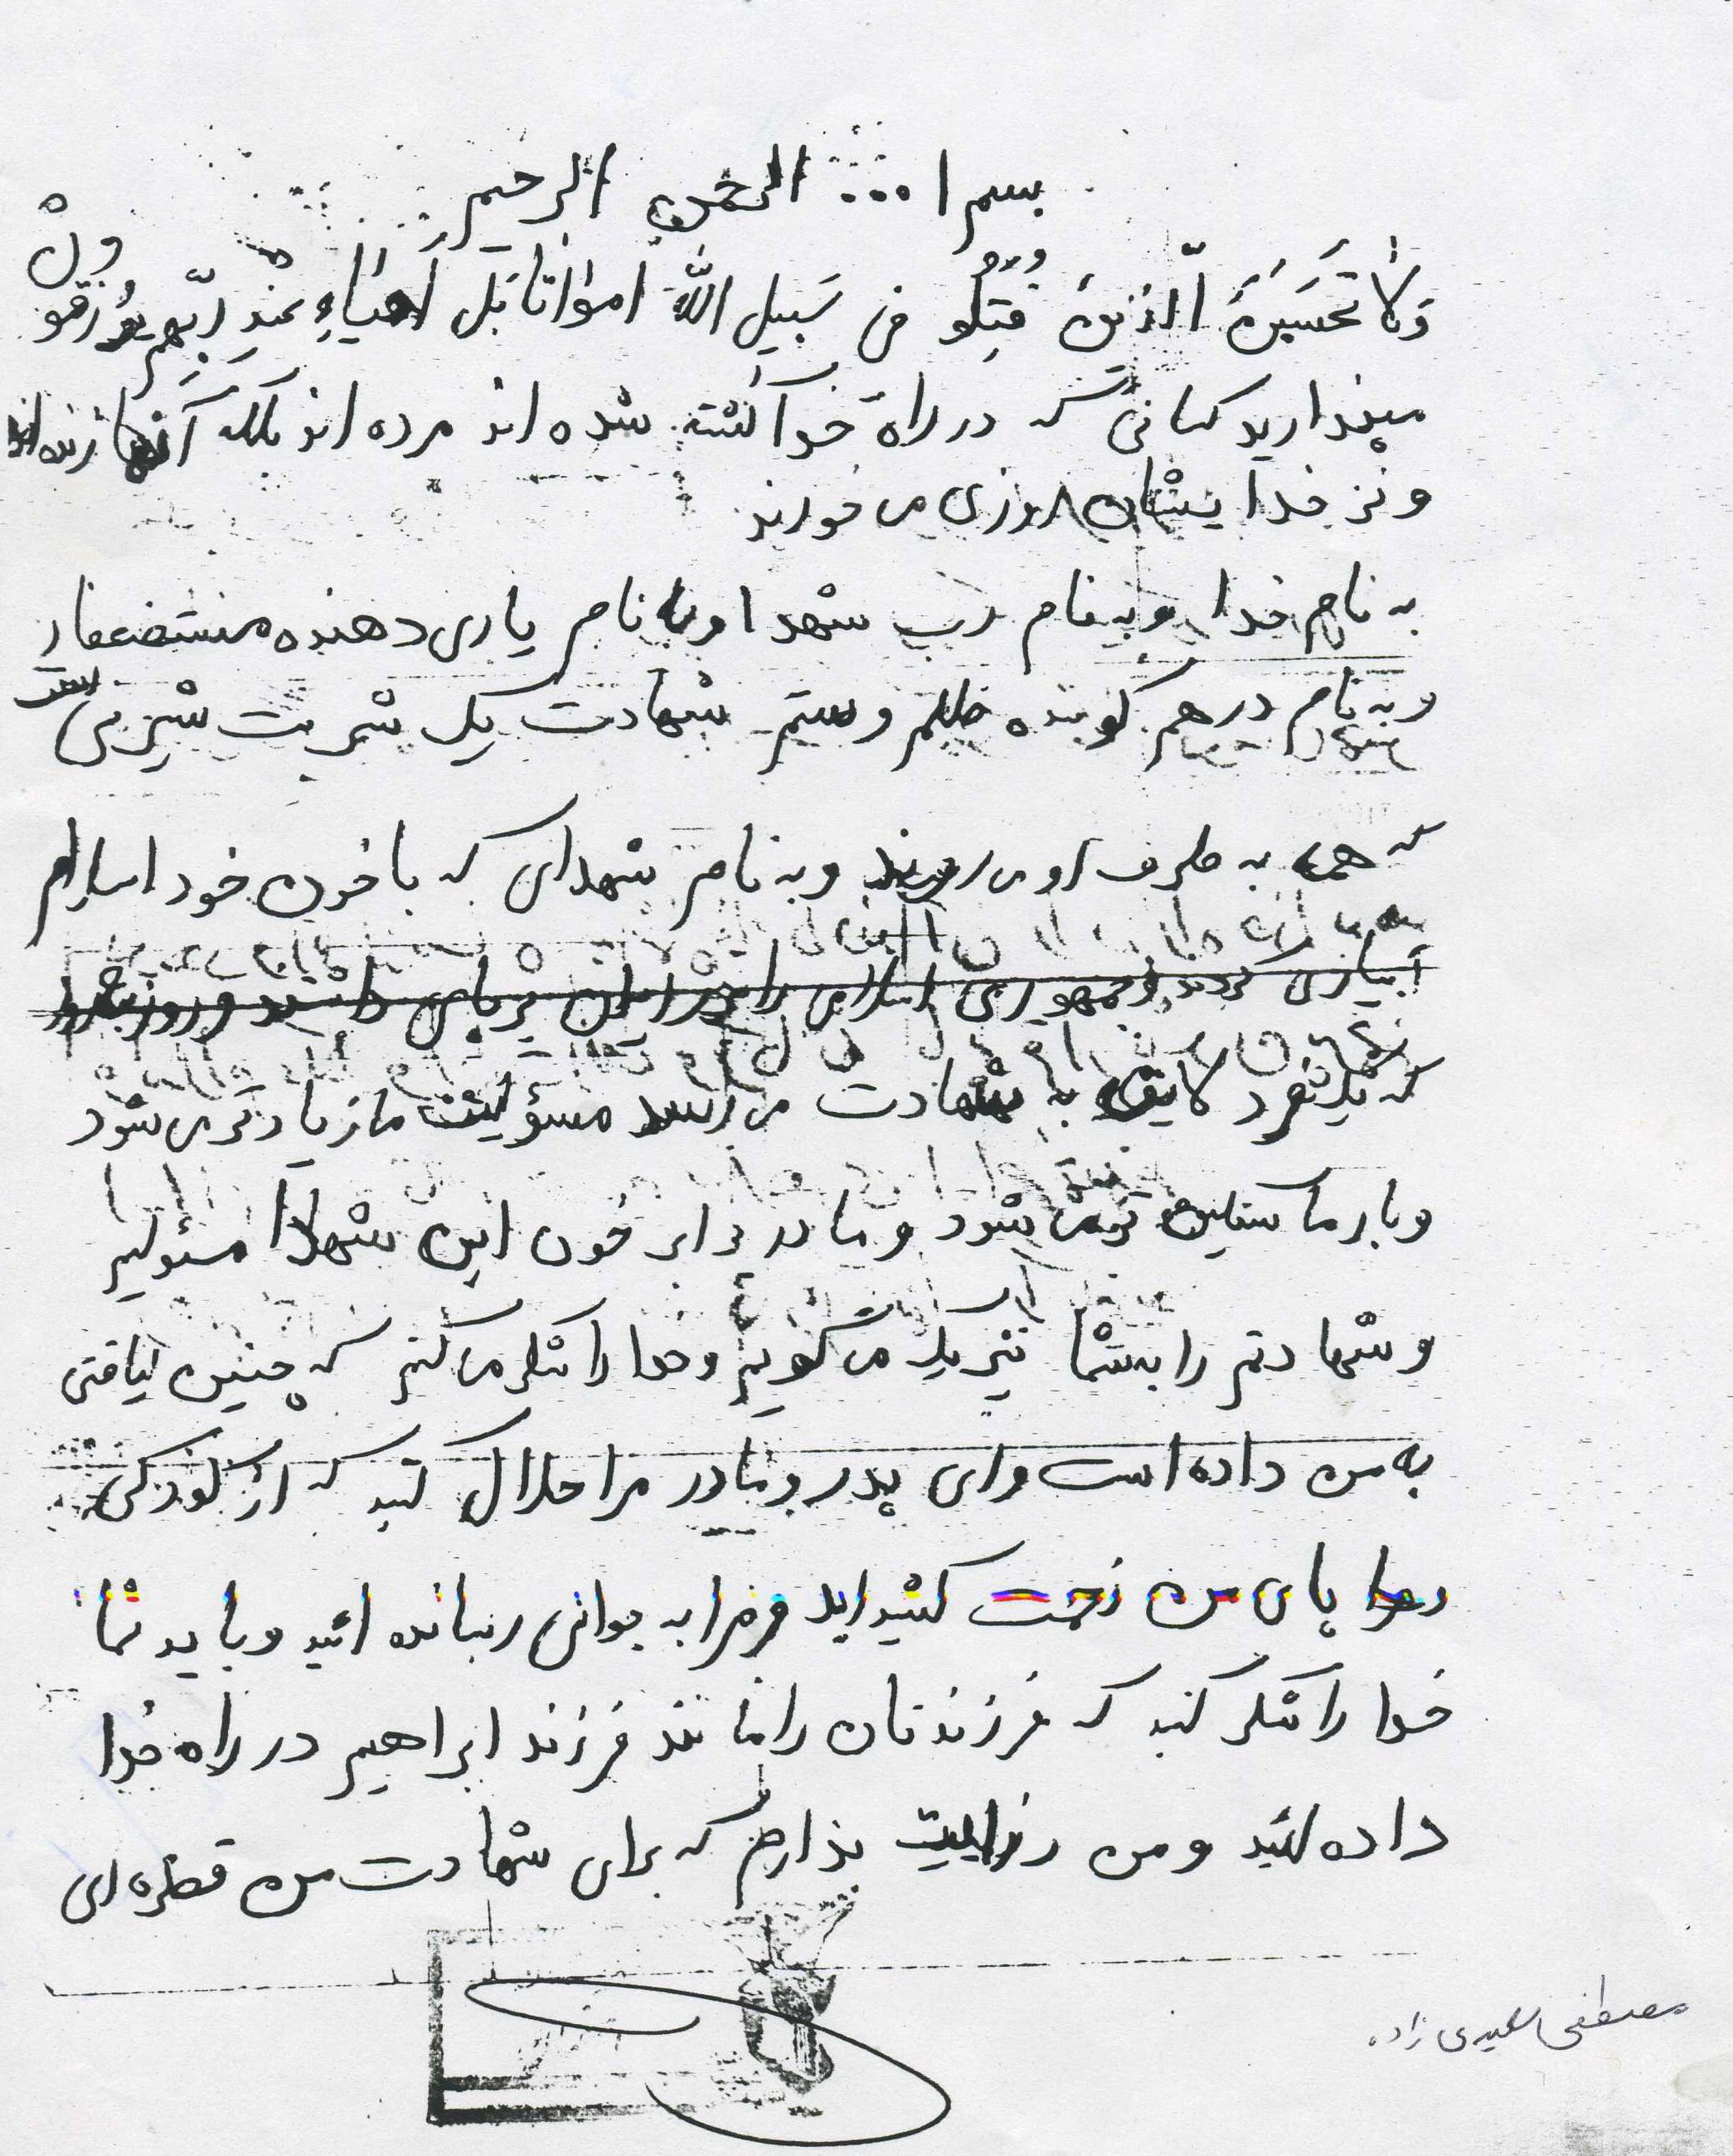 بسم ا... الرحمن الرحیم
وَلا تَحسَبَنَّ الّذینَ قُتِلُو فی سَبیلِ اللّه امواتا بَل اَحیاءِ عندِ ربّهم یُرزقون
مپندارید کسانی که در راه خدا کشته شده اند مرده اند بلکه آنها زنده اند
و نز خدایشان روزی می خورند
به نام خدا و به نام رب شهدا و به نام یاری دهنده مستضعفان
و به نام درهم کوبنده ظلم و ستم شهادت یک شربت شیرینی است
که همه به طرف او می روند و به نام شهدای که با خون خود اسلام
آبیاری کردند و جمهوری اسلامی را در ایران بر پای داشتند و روز
که یک نفرد لایق به شهادت می رسد مسؤلیت ما زیادتر می شود
و بار ما سنگین تر می شود و ما در برابر خون این شهدا مسئولیم
و شهادتم را به شما تبریک می گویم و خدا را شکر می کنم که چنین لیاقتی
به من داده است و ای پدر و مادر مرا حلال کنید که از کودکی
پای من زحمت کشیداید و مرا به جوانی رسانده ائید و باید شما
خدا را شکر کنید که فرزندتان را مانند فرزند ابراهیم در راه خدا
داده ائید و من رزاییت ندارم که برای شهادت من قطره ای
مصطفی سعیدی زاده